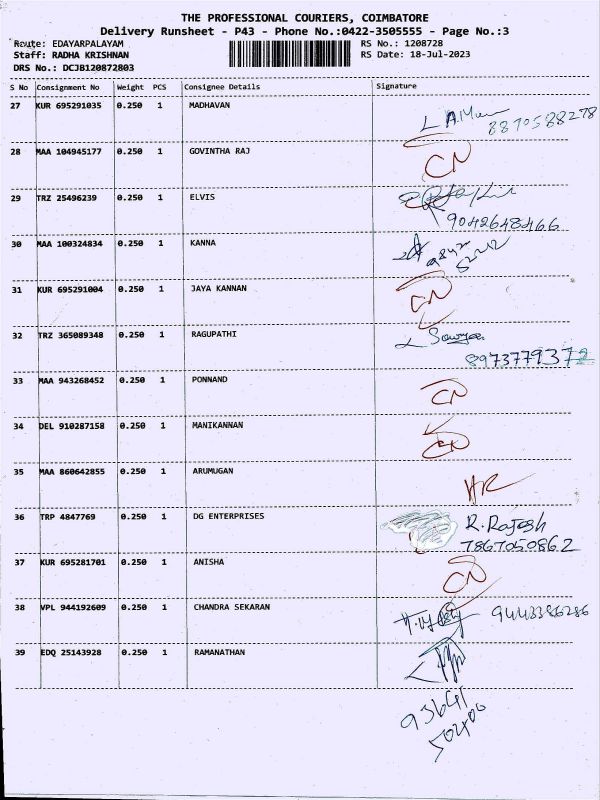 THE PROFESSIONAL COURIERS, COIMBATORE
Delivery Runsheet - P43 - Phone No.:0422-3505555 - Page No.:3
Route: EDAYARPALAYAM RS No.: 1208728
Staff: RADHA KRISHNAN RS Date: 18-Jul-2023
DRS No.: DCJB120872803
S No Consignment No Weight PCS Consignee Details Signature
27 KUR 695291035 0.250 1 MADHAVAN 8870588278
28 MAA 104945177 0.250 1 GOVINTHA RAJ CN
29 TRZ 25496239 0.250 1 ELVIS
9042648466
30 MAA 100324834 0.250 1 KANNA
31 KUR 695291004 0.250 1 JAYA KANNAN CN
32 TRZ 365089348 0.250 1 RAGUPATHI
8973779372
33 MAA 943268452 0.250 1 PONNAND CN
34 DEL 910287158 0.250 1 MANIKANNAN CN
35 MAA 860642855 0.250 1 ARUMUGAN
36 TRP 4847769 0.250 1 DG ENTERPRISES R. Rajesh
7867050862
37 KUR 695281701 0.250 1 ANISHA CN
38 VPL 944192609 0.250 1 CHANDRA SEKARAN 9443386286
39 EDQ 25143928 0.250 1 RAMANATHAN
93641
50400